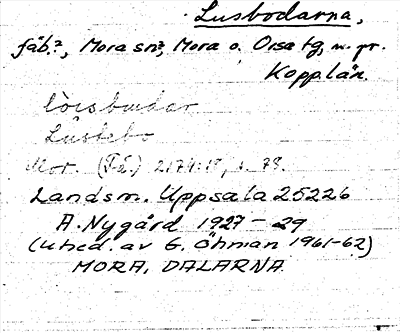 Lusbodarna,
fäb.?, Mora sn?, Mora o. Orsa tg, n. pr.
Kopp.län.
Lüstebo
Mor. (Fä.) 2174:18, s. 78.
Landsm. Uppsala 25226
A. Nygård 1927-29
(uhed. av G. Öhman 1961-62)
MORA, DALARNA